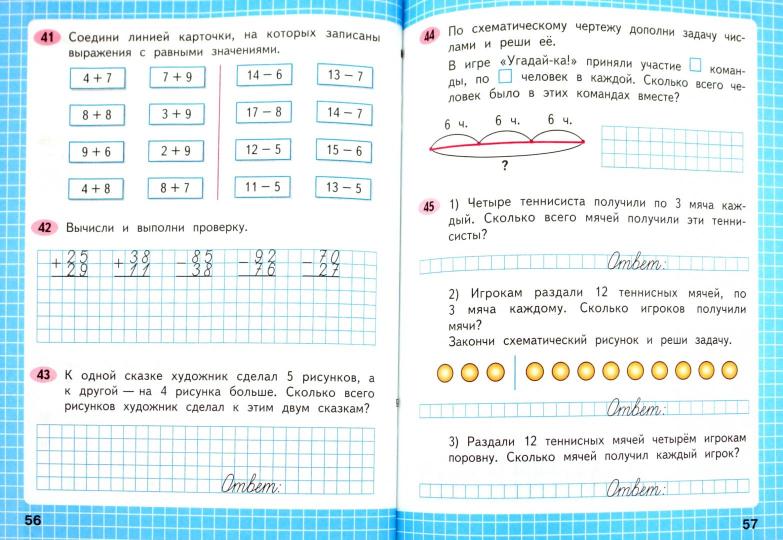 41 Соедини линией карточки, на которых записаны
выражения с равными значениями.
4 + 7 7 + 9 14 − 6 13 − 7
8 + 8 3 + 9 17 − 8 14 − 7
9 + 6 2 + 9 12 − 5 15 − 6
4 + 8 8 + 7 11 − 5 13 − 5
42 Вычисли и выполни проверку.
+ 25 + 38 − 85 − 92 − 70
29 11 38 76 27
43 К одной сказке художник сделал 5 рисунков, а
к другой — на 4 рисунка больше. Сколько всего
рисунков художник сделал к этим двум сказкам?
Ответ:
56
44 По схематическому чертежу дополни задачу чис-
лами и реши её.
В игре «Угадай-ка!» приняли участие □ коман-
ды, по □ человек в каждой. Сколько всего че-
ловек было в этих командах вместе?
6 ч. 6 ч. 6 ч.
?
45 1) Четыре теннисиста получили по 3 мяча каж-
дый. Сколько всего мячей получили эти тенни-
систы?
Ответ:
2) Игрокам раздали 12 теннисных мячей, по
3 мяча каждому. Сколько игроков получили
мячи?
Закончи схематический рисунок и реши задачу.
Ответ:
3) Раздали 12 теннисных мячей четырём игрокам
поровну. Сколько мячей получил каждый игрок?
Ответ:
57